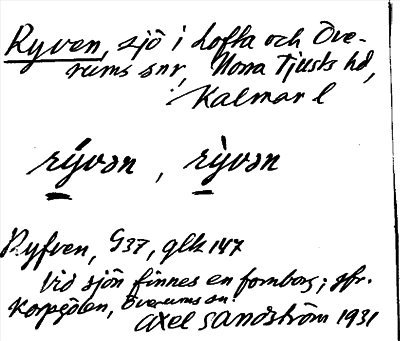 Ryven, sjö i Lofta och Öve-
rums snr, Norra Tjusts hd,
Kalmar l
rý̱vən, rỳ̱vən
Ryfven, G37, glk 147
Vid sjön finnes en fornborg; jfr.
Korpgölen, Överums sn.
Axel Sandström 1931